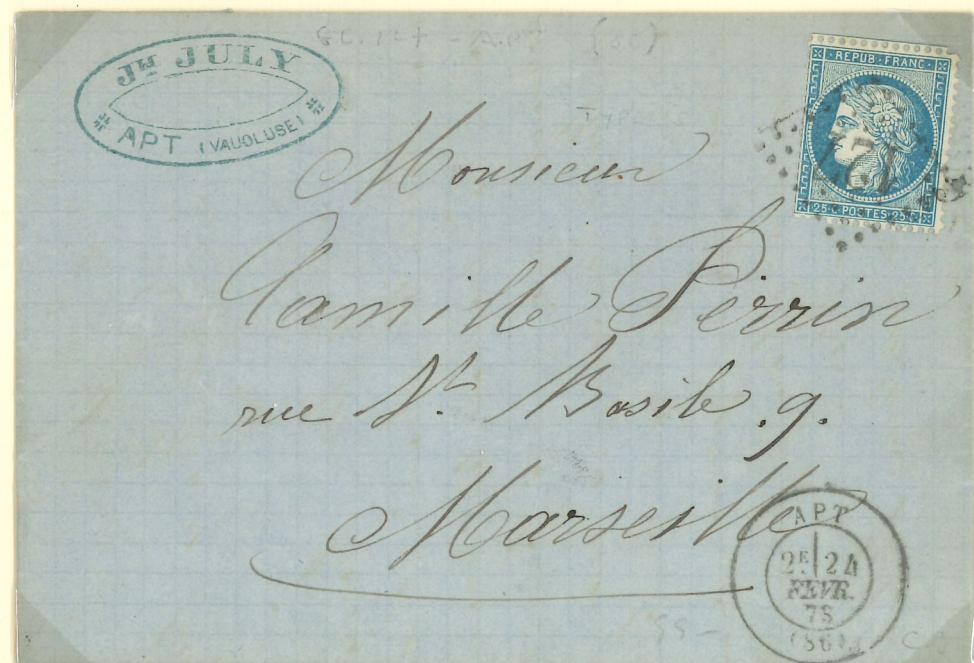 Jh JULY
APT (VAUCLUSE)
GC. 124 - APT (86)
REPUB · FRANC ·
25 · C · POSTES · 25 · C
Monsieur
Camille Perrin
rue St. Basile . 9.
Marseille
APT
2E 24
FEVR.
(86)
55 -